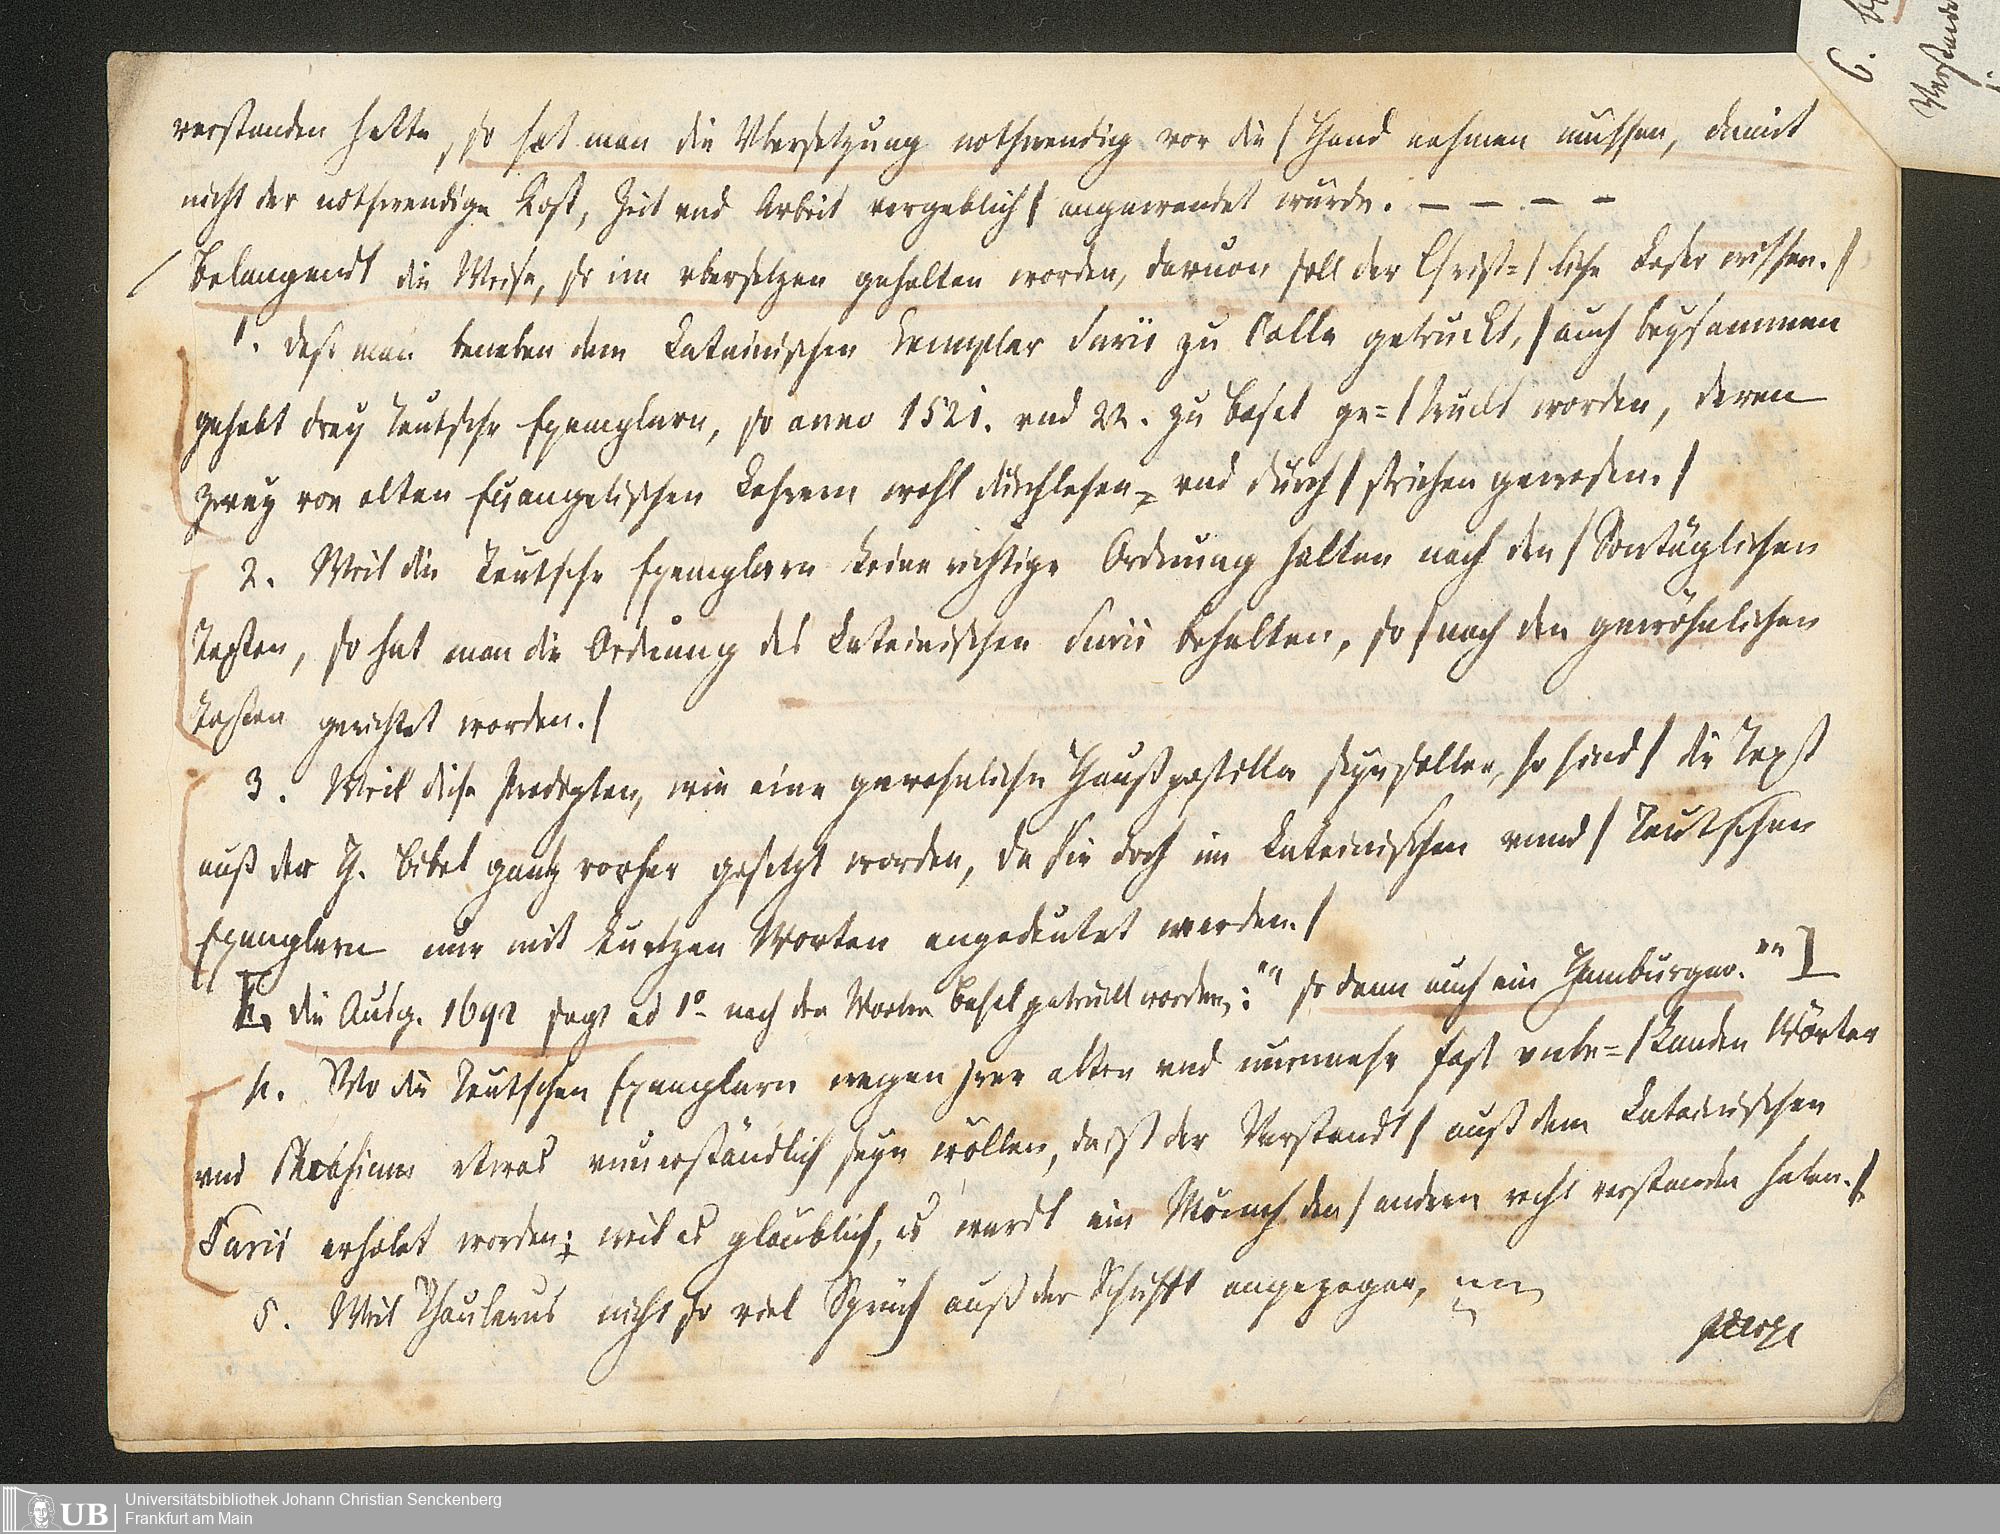 verstanden hette, so hat man die Vbersetzung nothwendig vor die / Hand nehmen müssen, damit
nicht der nothwendige Kost, Zeit vnd Arbeit vergeblich / angewendet würde. — — — —
/ Belangendt die Weise, so im vbersetzen gehalten worden, daruon soll der Christ= / liche Leser wissen. /
1. Daß man beneben dem Lateinischen Exemplar Surii zu Cölln getruckt, / auch beysammen
gehabt drey Teutsche Exemplarn, so anno 1521. vnd 22. zu Basel ge= / truckt worden, deren
zwey von alten Euangelischen Lehrern wohl durchlesen, vnd durch / strichen gewesen. /
2. Weil die Teutsche Exemplarn keine richtige Ordnung halten nach den / Sontäglichen
Texten, so hat man die Ordnung des Lateinischen Surii behalten, so / nach den gewöhnlichen
Texten gerichtet worden. /
3. Weil diese Predigten, wie eine gewohnliche Haußpostilla seyn sollen, so sind / die Text
auß der H. Bibel gantz vorher gesetzt worden, da sie doch im Lateinischen vnnd / Teutschen
Exemplarn nur mit kurtzen Worten angedeutet werden. /
die Ausg. 1692 sagt ad 1º nach den Worten Basel getruckt worden: "" so dann auch ein Hamburger. ""]
4. Wo die Teutschen Exemplarn wegen jrer alten vnd nunmehr fast vnbe= / kanden Wörter
vnd etwas vnuerständlich seyn wöllen, da ist der Verstandt / auß dem Lateinischen
Surii erholet worden; weil es glaublich, es werdt ein Mönch den / andern recht verstanden haben. /
5. Weil Thaulerus nicht so viel Sprüch auß der Schrifft angezogen,
6.
Verstande